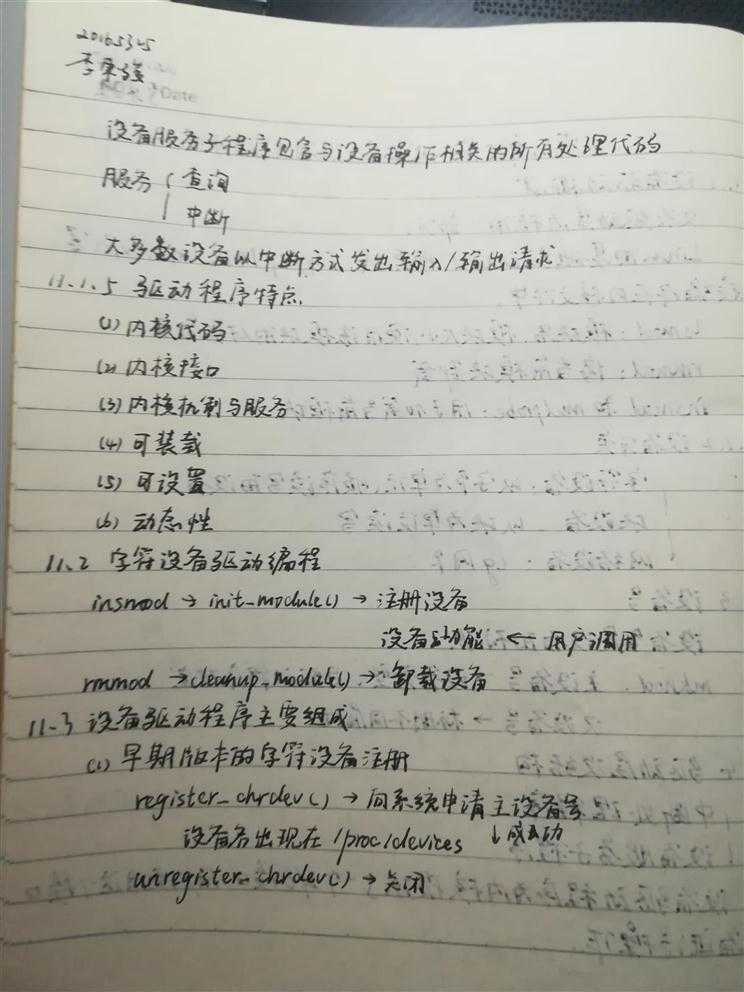 20165325
Date
设备服务子程序包含与设备操作相关的所有处理代码
服务 { 查询
中断
大多数设备以中断方式发出输入/输出请求
11.1.5 驱动程序特点
(1) 内核代码
(2) 内核接口
(3) 内核机制与服务
(4) 可装载
(5) 可设置
(6) 动态性
11.2 字符设备驱动编程
insmod → init_module() → 注册设备
设备功能 ← 用户调用
rmmod → cleanup_module() → 卸载设备
11.3 设备驱动程序主要组成
(1) 早期版本的字符设备注册
register_chrdev() → 向系统申请主设备号
设备名出现在 /proc/devices ↓成功
unregister_chrdev() → 关闭